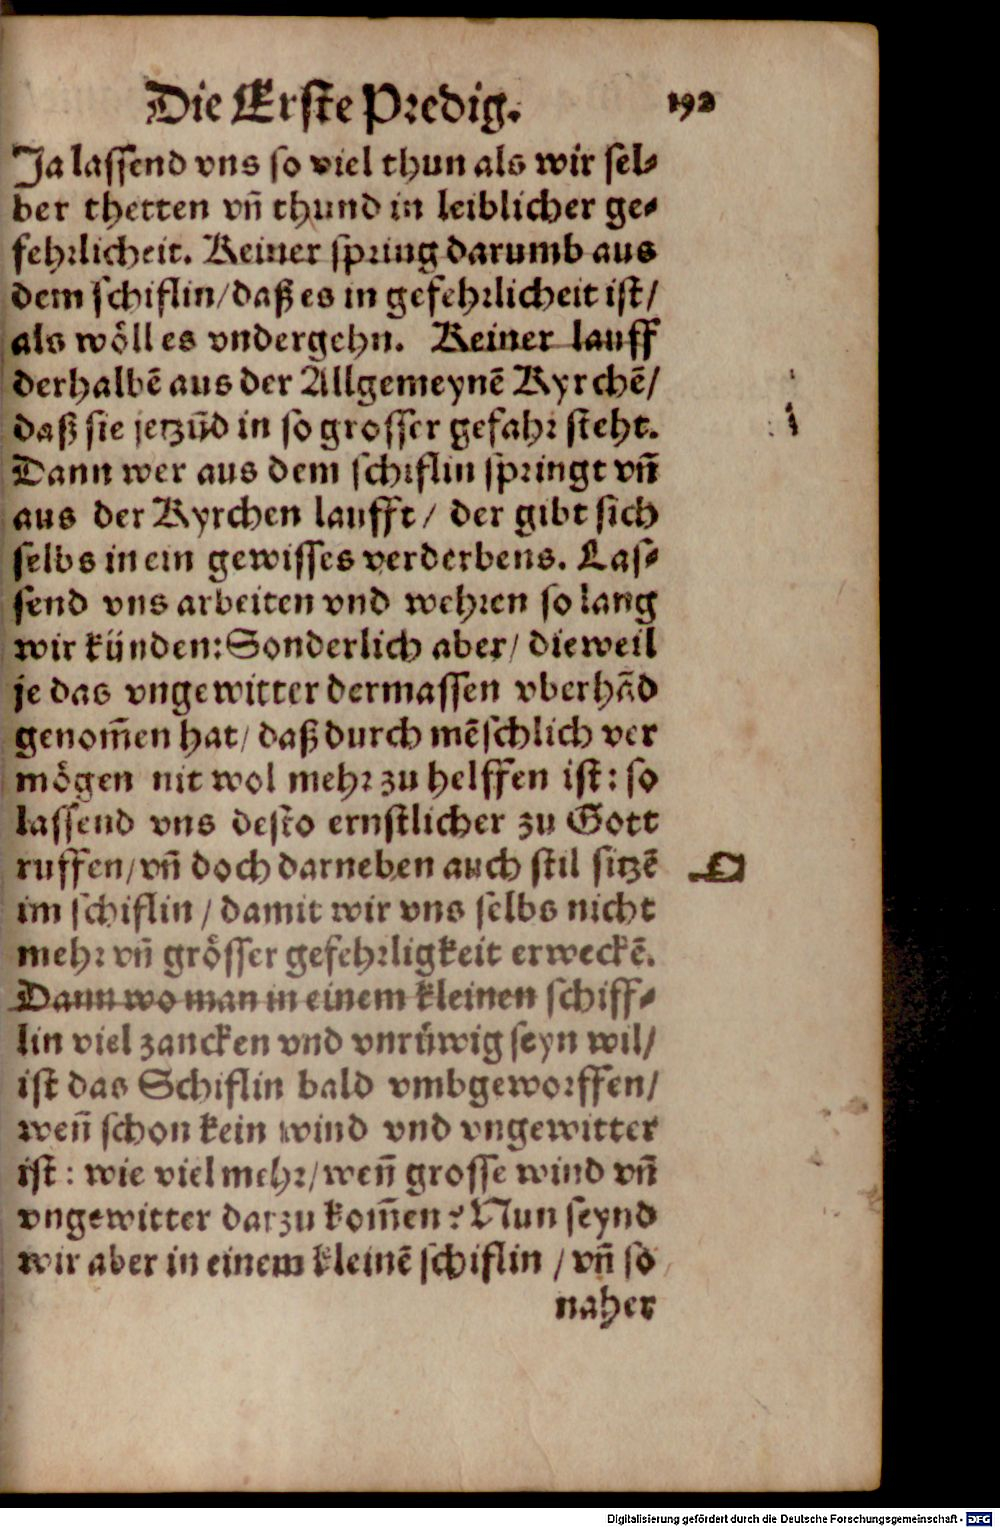 Die Erste Predig. 192
Ja lassend vns so viel thun als wir sel⸗
ber thetten vñ thund in leiblicher ge⸗
fehrlicheit. Keiner spring darumb aus
dem schiflin/ daß es in gefehrlicheit ist/
als wöll es vndergehn. Keiner lauff
derhalbẽ aus der Allgemeynẽ Kyrchẽ/
daß sie jetzũd in so grosser gefahr steht.
Dann wer aus dem schiflin springt vñ
aus der Kyrchen laufft/ der gibt sich
selbs in ein gewisses verderbens. Las⸗
send vns arbeiten vnd wehren so lang
wir künden: Sonderlich aber/ dieweil
je das vngewitter dermassen vberhãd
genom̃en hat/ daß durch mẽschlich ver
mögen nit wol mehr zu helffen ist: so
lassend vns desto ernstlicher zu Gott
ruffen/ vñ doch darneben auch stil sitzẽ
im schiflin/ damit wir vns selbs nicht
mehr vñ grösser gefehrligkeit erweckẽ.
Dann wo man in einem kleinen schiff⸗
lin viel zancken vnd vnrüwig seyn wil/
ist das Schiflin bald vmbgeworffen/
weñ schon kein wind vnd vngewitter
ist: wie viel mehr/ weñ grosse wind vñ
vngewitter darzu kom̃en? Nun seynd
wir aber in einem kleinẽ schiflin/ vñ so
naher
Digitalisierung gefördert durch die Deutsche Forschungsgemeinschaft - DFG